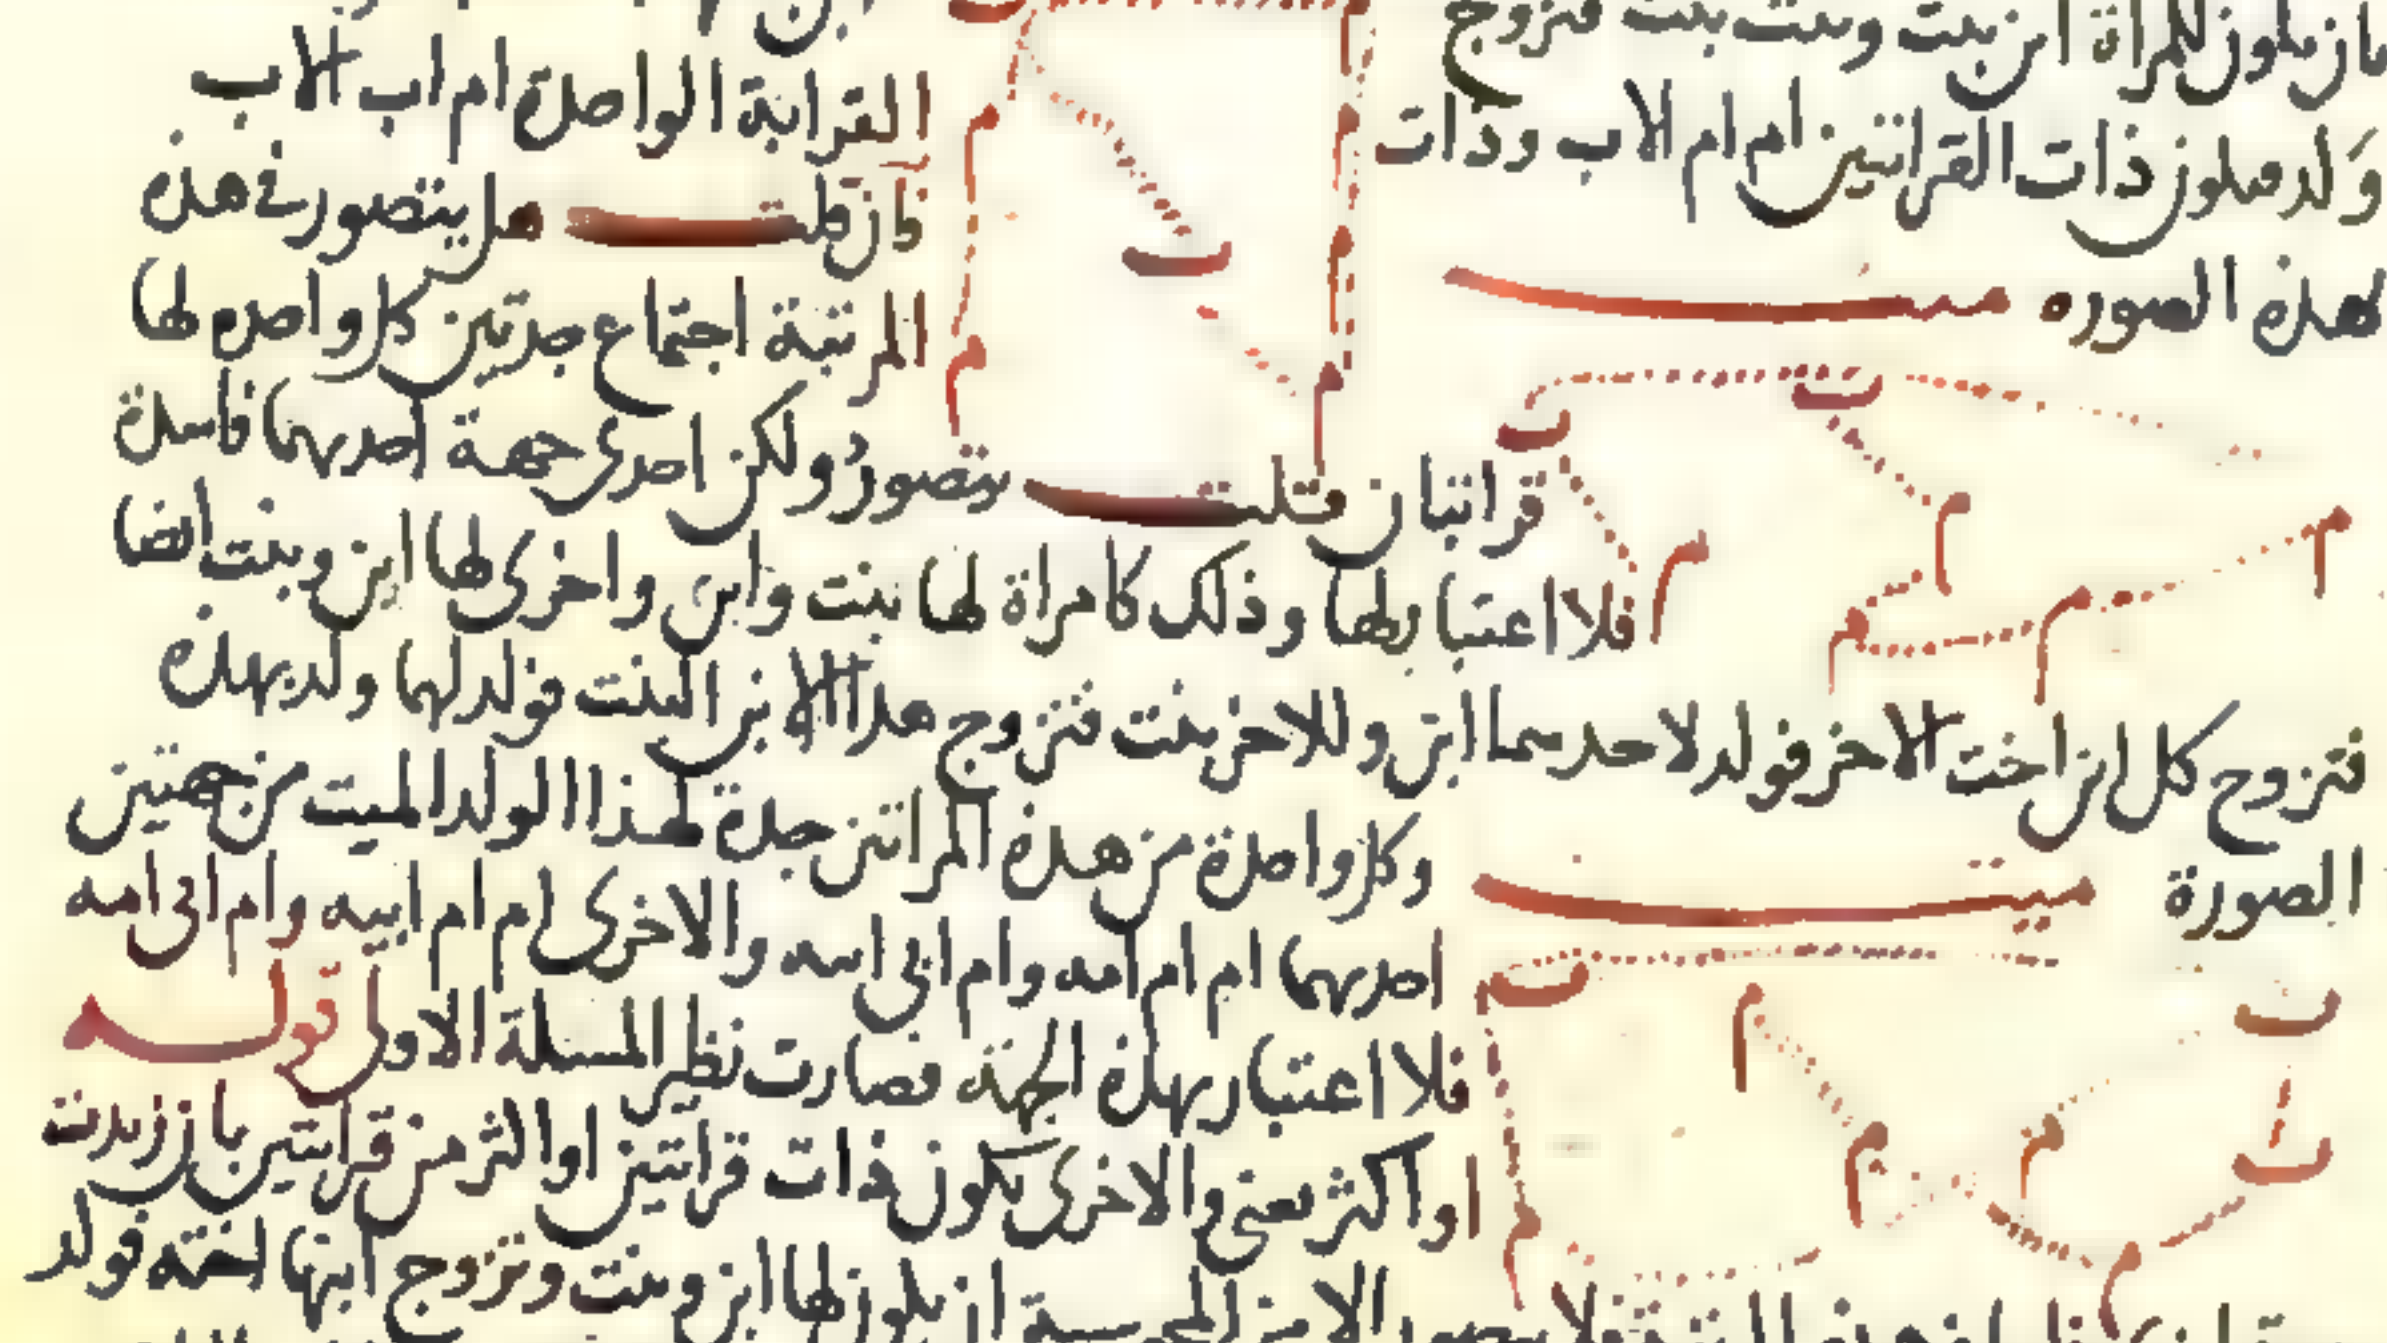 بان يكون للمراة ابن بنت وبنت بنت فتزوج
القرابة الواحدة ام اب الاب
ولد فيكون ذات القرابتين ام ام الاب وذات
فان قلت هل يتصور في هذه
بهذه الصوره ميت
المرتبة اجتماع جدتين كل واحده لها
قرابتان قلت يتصور ولكن احدى جهة احديهما فاسدة
فلا اعتبار لها وذلك كامراة لها بنت وابن واخرى لها ابن وبنت ايضا
فتزوج كل ابن اخت الاخر فولد لاحدهما ابن وللاخر بنت فتزوج هذا الابن البنت فولد لهما ولد بهذه
الصورة ميت
وكل واحدة من هذه المراتين جدة لهذا الولد الميت من جهتين
احديهما ام ام امه وام ابي امه والاخرى ام ام ابيه وام ابي امه
فلا اعتبار بهذه الجهة فصارت نظير المسئلة الاولى قوله
او اكثر يعني والاخرى يكون ذات قرابتين او اكثر من قرابتين بان زيدت
ان يكون لها ابن وبنت وتزوج ابنها اخته فولد